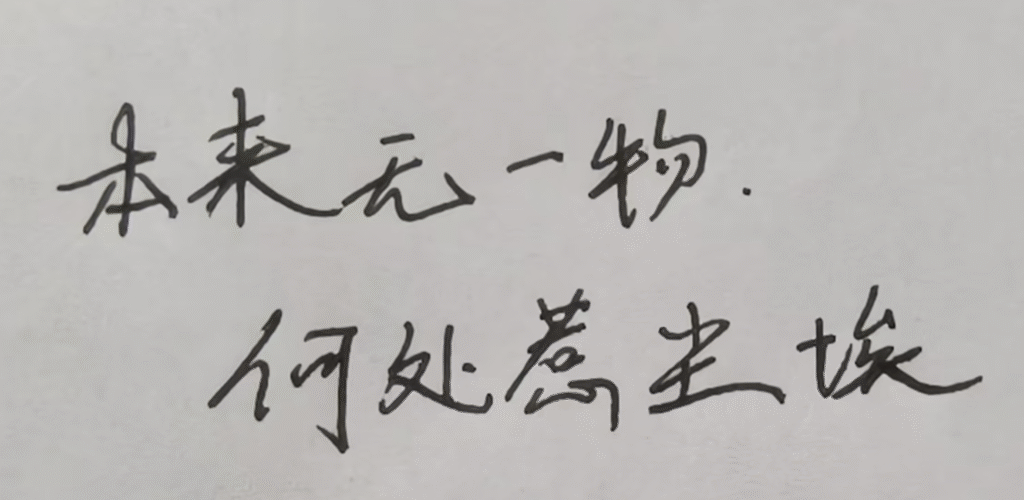 本来无一物.
何处惹尘埃